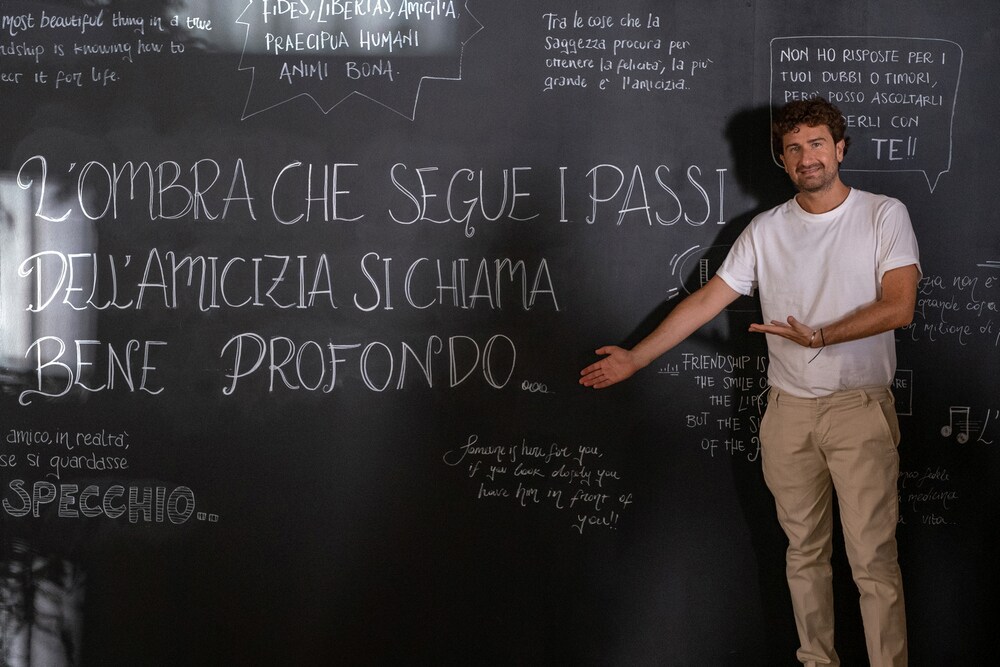 most beautiful thing in a true
dship is knowing how to
it for life.
FIDES, LIBERTAS, AMIGLIA,
PRAECIPUA HUMANI
ANIMI BONA.
Tra le cose che la
Saggezza procura per
ottenere la felicità, la più
grande e' l'amicizia..
NON HO RISPOSTE PER I
TUOI DUBBI O TIMORI,
PERO' POSSO ASCOLTARLI
DERLI CON
TE!!
L'OMBRA CHE SEGUE I PASSI
DELL'AMICIZIA SI CHIAMA
BENE PROFONDO...
zia non e'
grande cos
un milione di
FRIENDSHIP IS
THE SMILE O
THE LIPS
BUT THE S
OF THE
ARE
L'
amico, in realtà,
se si guardasse
SPECCHIO...
Someone is here for you,
if you look closely you
have him in front of
you!!
medicina
vita..